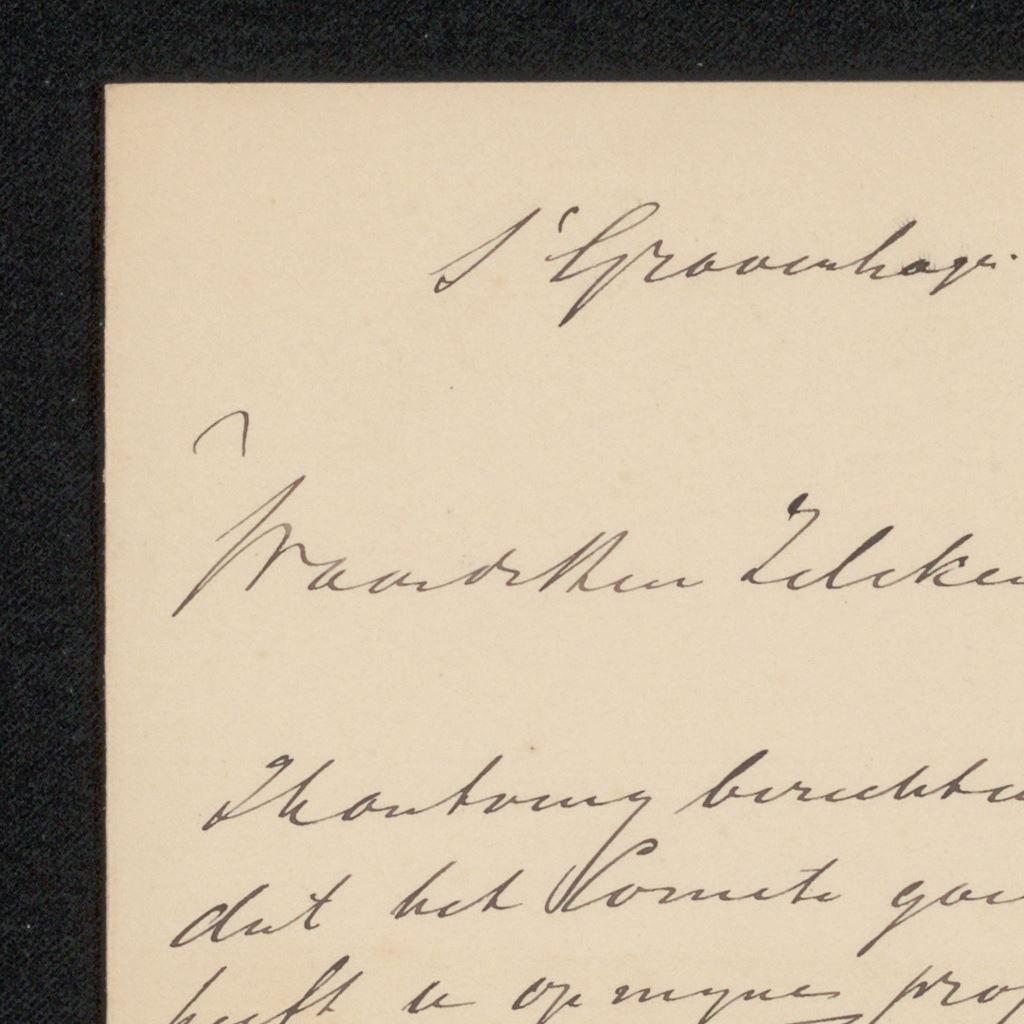 S' Gravenhage.
Waarde Heer Zilcken
Ik ontving berichten
dat het Comite
heeft u op mijne